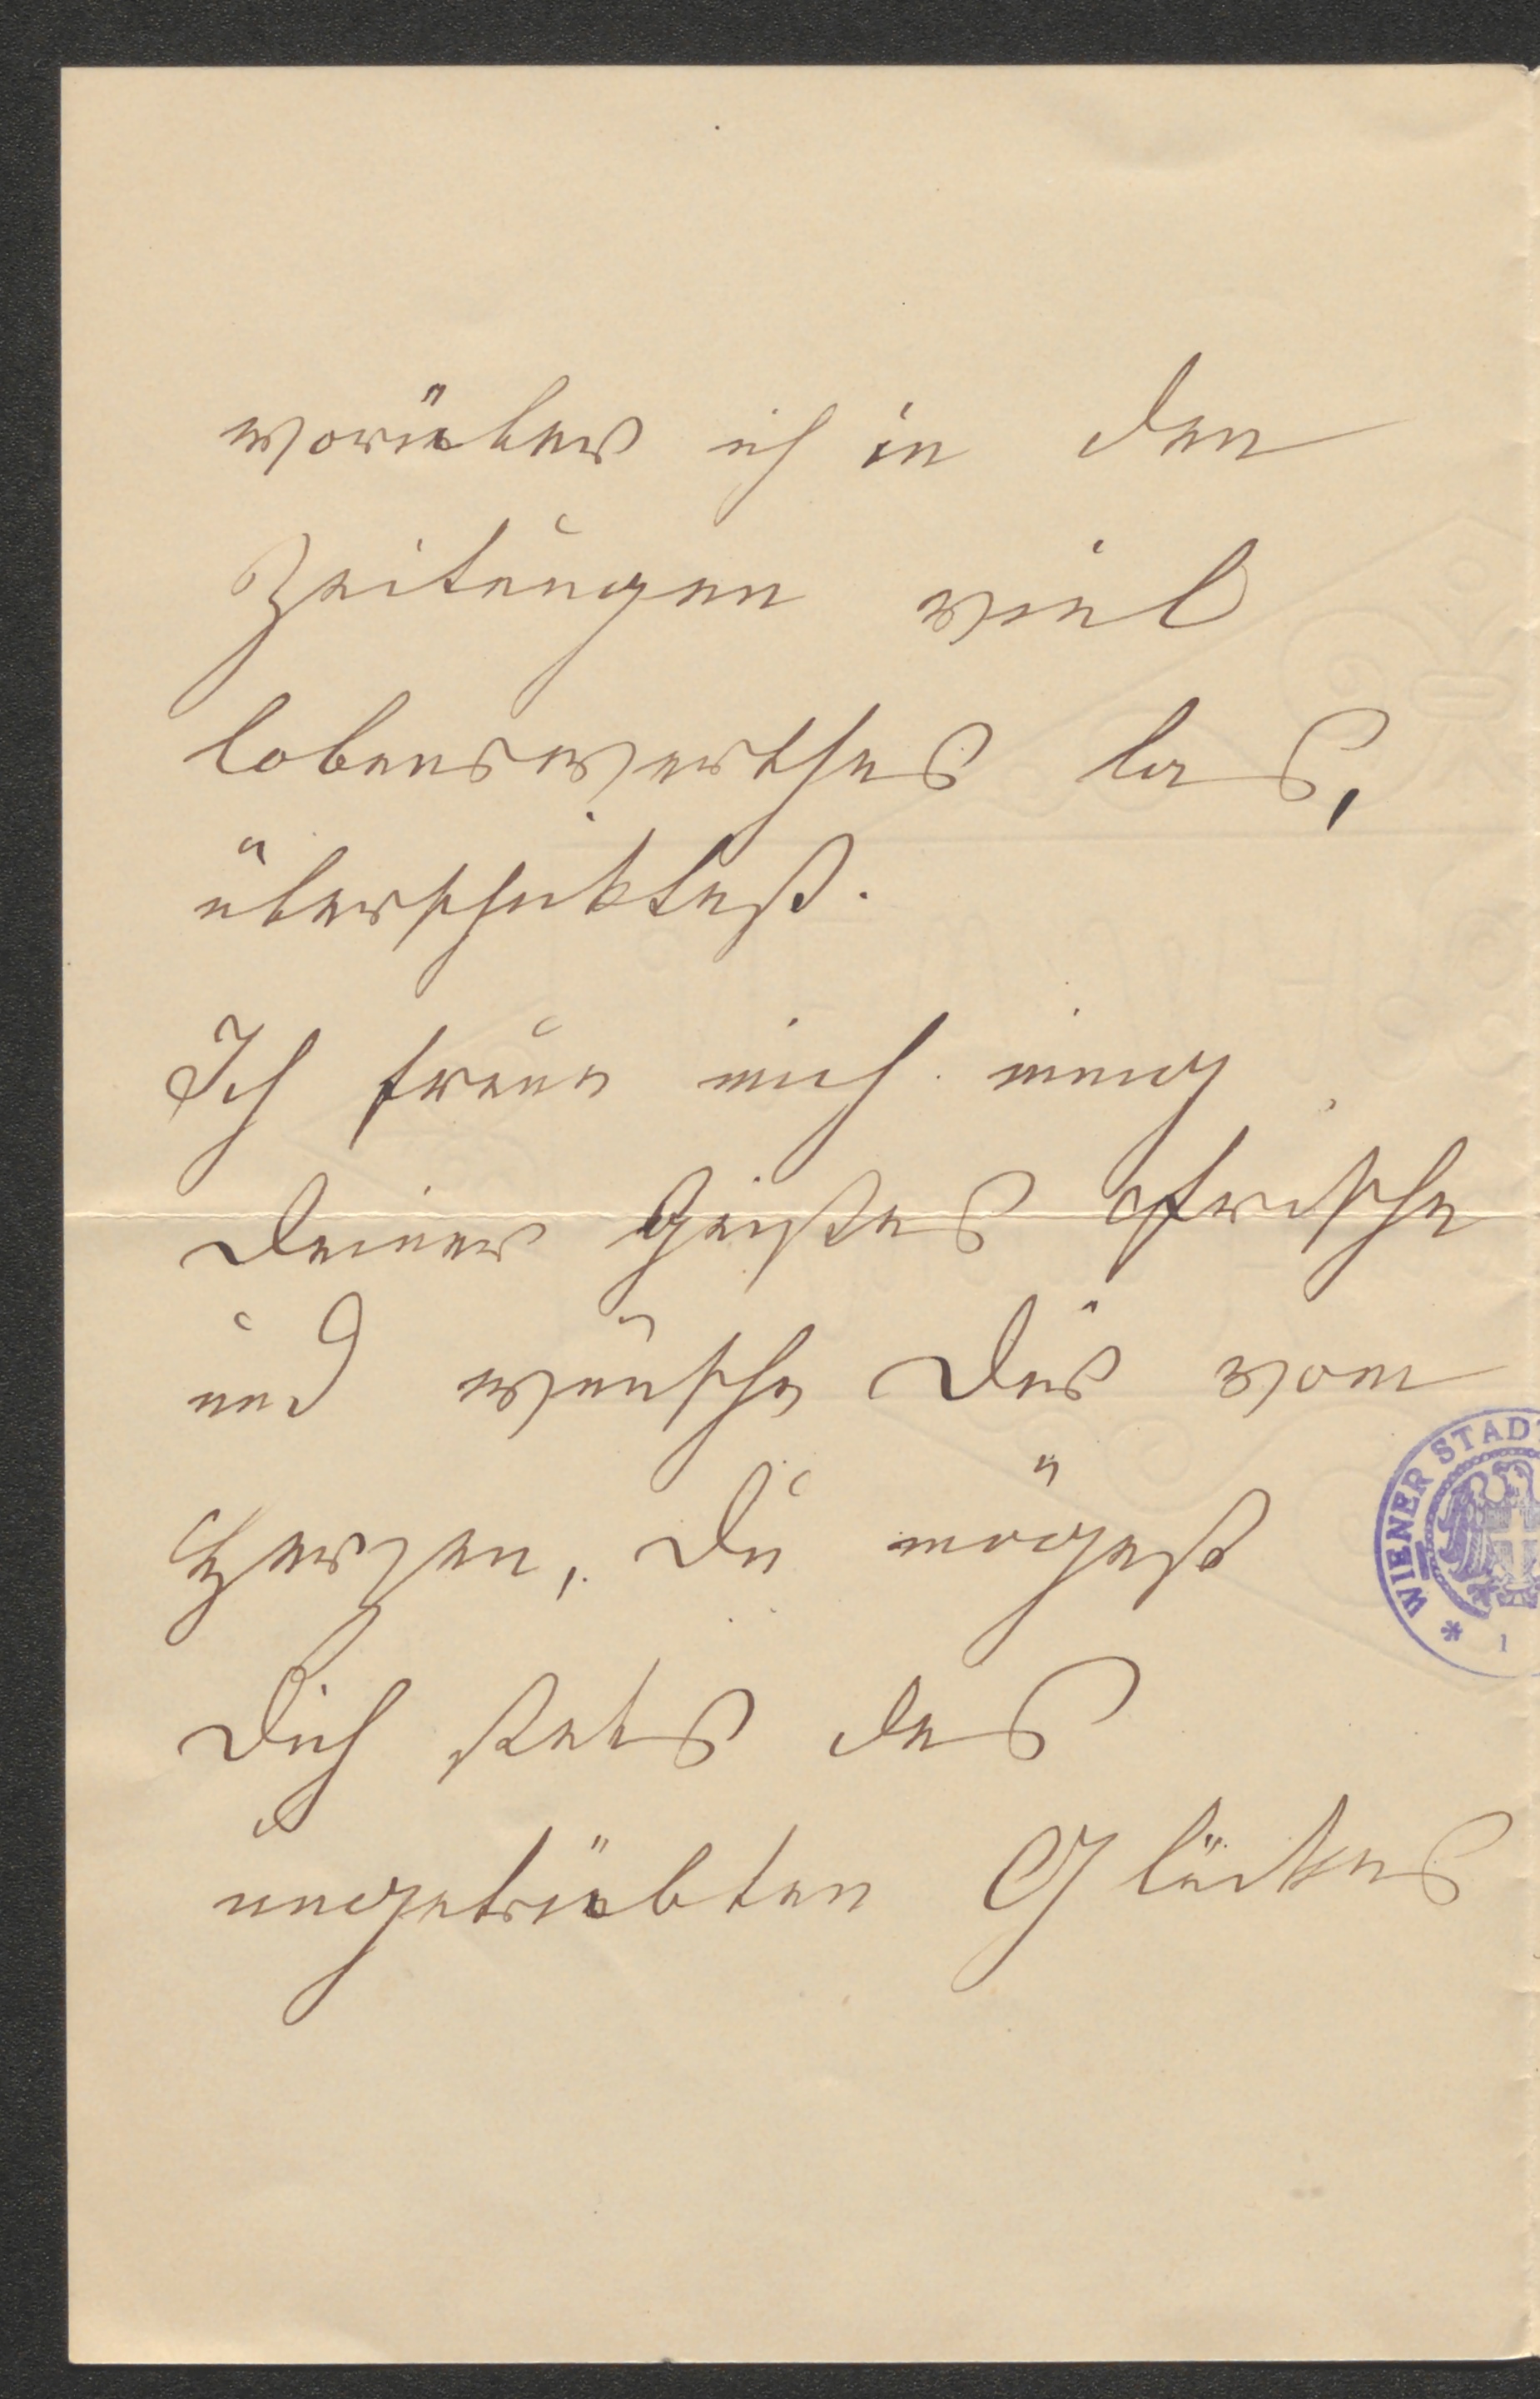 worüber ich in den
Zeitungen viel
lobenswerthes las,
überschicktest.
Ich freue mich innig
Deiner Geistes Frische
und wünsche Dir vom
Herzen, Du mögest
Dich stets des
ungetrübten Glückes
WIENER STADT
* 1